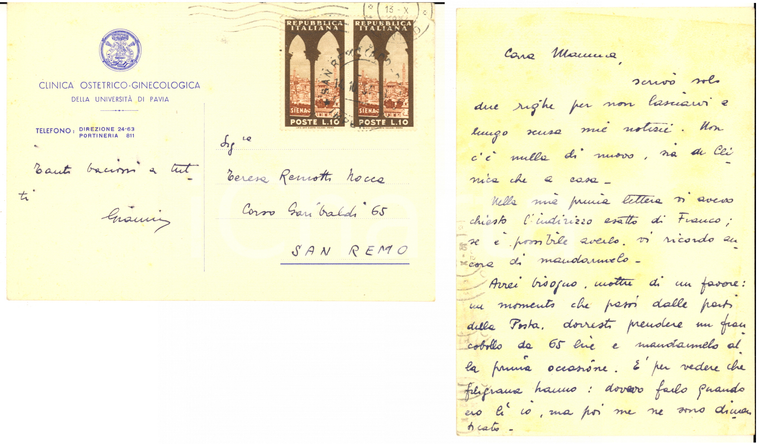 CLINICA OSTETRICO-GINECOLOGICA
DELLA UNIVERSITÀ DI PAVIA
TELEFONO: DIREZIONE 24-63
PORTINERIA 811
Tanti bacioni a tut-
ti
Gianni
REPUBBLICA
ITALIANA
SIENA
POSTE L.10
REPUBBLICA
ITALIANA
SIENA
POSTE L.10
13-X
SAN REMO
Sig.ra
Teresa Remotti Nocca
Corso Garibaldi 65
SAN REMO
Cara Mamma,
scrivo solo
due righe per non lasciarvi a
lungo senza mie notizie. Non
c'è nulla di nuovo, sia in Cli-
nica che a casa-
Nella mia prima lettera vi avevo
chiesto l'indirizzo esatto di Franco;
se è possibile averlo, vi ricordo an-
cora di mandarmelo-
Avrei bisogno, inoltre di un favore:
un momento che passi dalle parti
della Posta, dovresti prendere un fran
cobollo da 65 lire e mandarmelo al
la prima occasione. E' per vedere che
filigrana hanno: dovevo farlo quando
ero lì io, ma poi me ne sono dimen
ticato-